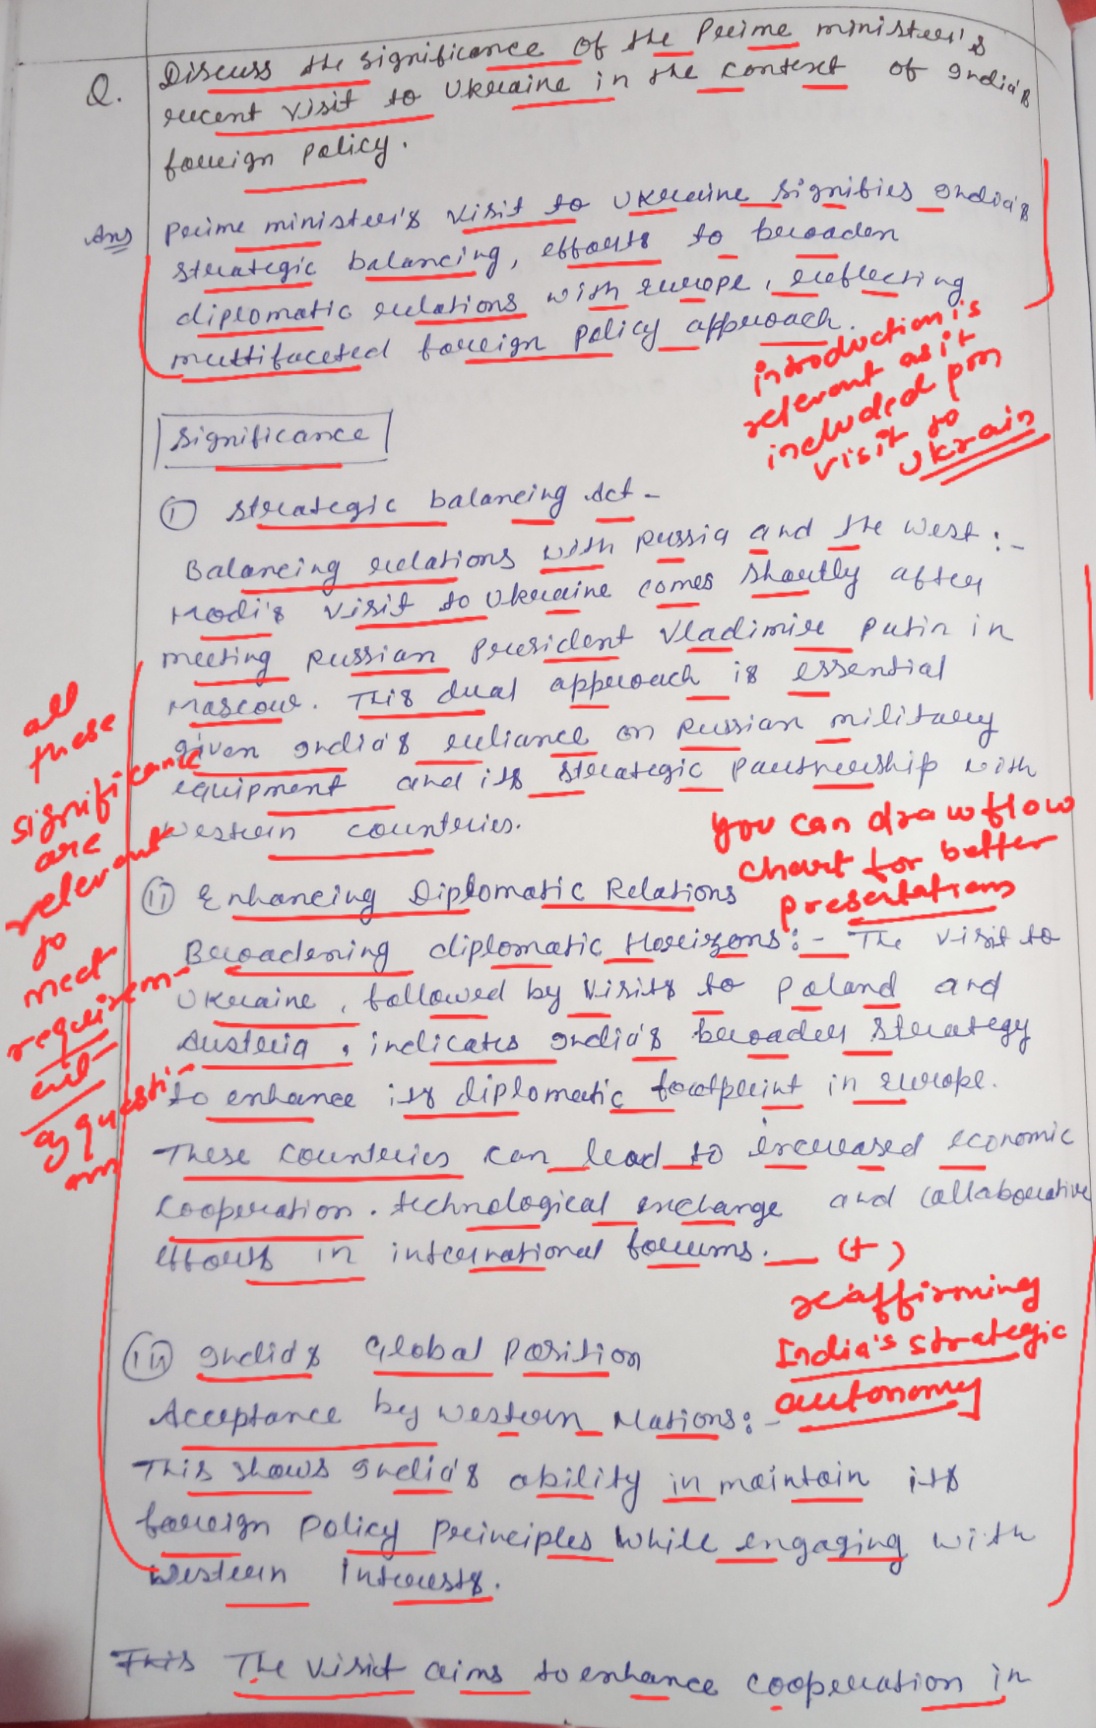 Q. Discuss the significance of the Prime minister's
recent visit to Ukraine in the context of India's
foreign policy.
Ans Prime minister's visit to Ukraine signifies India's
strategic balancing, efforts to broaden
diplomatic relations with Europe, reflecting
multifaceted foreign policy approach.
introduction is
relevant as it
included pm
visit to
Ukrain
Significance
(i) Strategic balancing Act -
Balancing relations with Russia and the West :-
Modi's visit to Ukraine comes shortly after
meeting Russian President Vladimir Putin in
Moscow. This dual approach is essential
given India's reliance on Russian military
equipment and its strategic partnership with
Western countries.
all
these
significance
are
relevant
to
meet
requirem-
ent
of questi-
on
you can draw flow
chart for better
presentations
(ii) Enhancing Diplomatic Relations
Broadening diplomatic Horizons :- The visit to
Ukraine, followed by visits to Poland and
Austria, indicates India's broader strategy
to enhance its diplomatic footprint in Europe.
These countries can lead to increased economic
cooperation. technological exchange and collaborative
efforts in international forums. (+)
reaffirming
India's strategic
autonomy
(iii) India's Global Position
Acceptance by Western Nations :-
This shows India's ability in maintain its
foreign policy principles while engaging with
Western Interests.
This The visit aims to enhance cooperation in